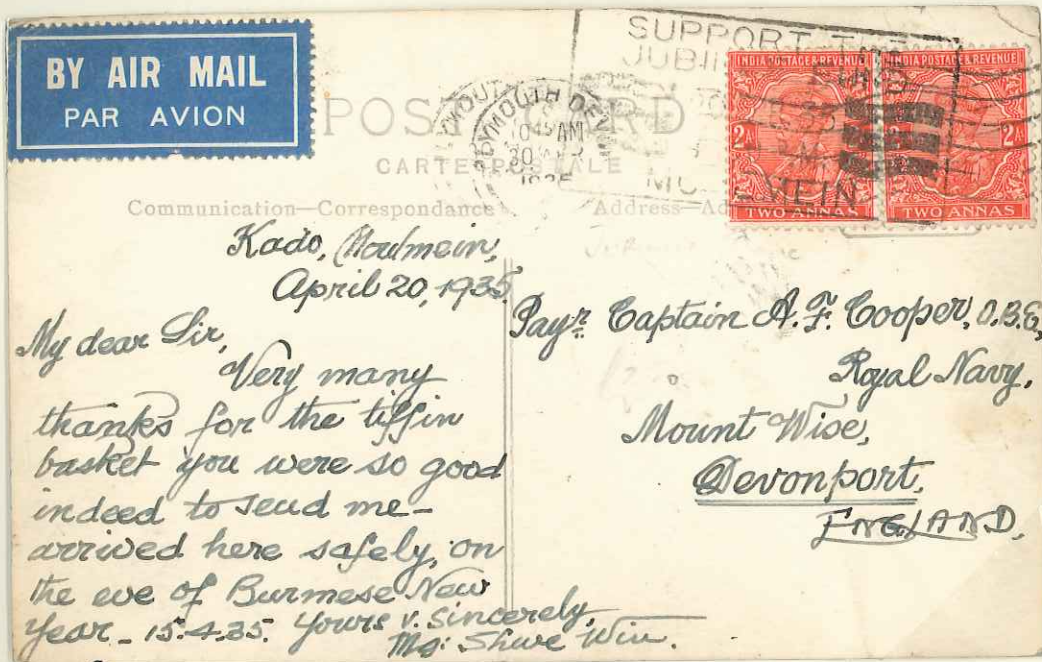 BY AIR MAIL
PAR AVION
POST CARD
CARTE POSTALE
SUPPORT THE
JUBI
MOULMEIN
PLYMOUTH DEVON
10 45 AM
1935
INDIA POSTAGE & REVENUE
2A
TWO ANNAS
INDIA POSTAGE & REVENUE
2A
TWO ANNAS
Communication—Correspondance
Address—Ad
Kado, Moulmein,
April 20, 1935.
My dear Sir,
Very many
thanks for the tiffin
basket you were so good
indeed to send me—
arrived here safely, on
the eve of Burmese New
Year - 15.4.35. Yours v. sincerely,
Mg: Shwe Win.
Payr Captain A. F. Cooper, O.B.E,
Royal Navy,
Mount Wise,
Devonport,
ENGLAND,